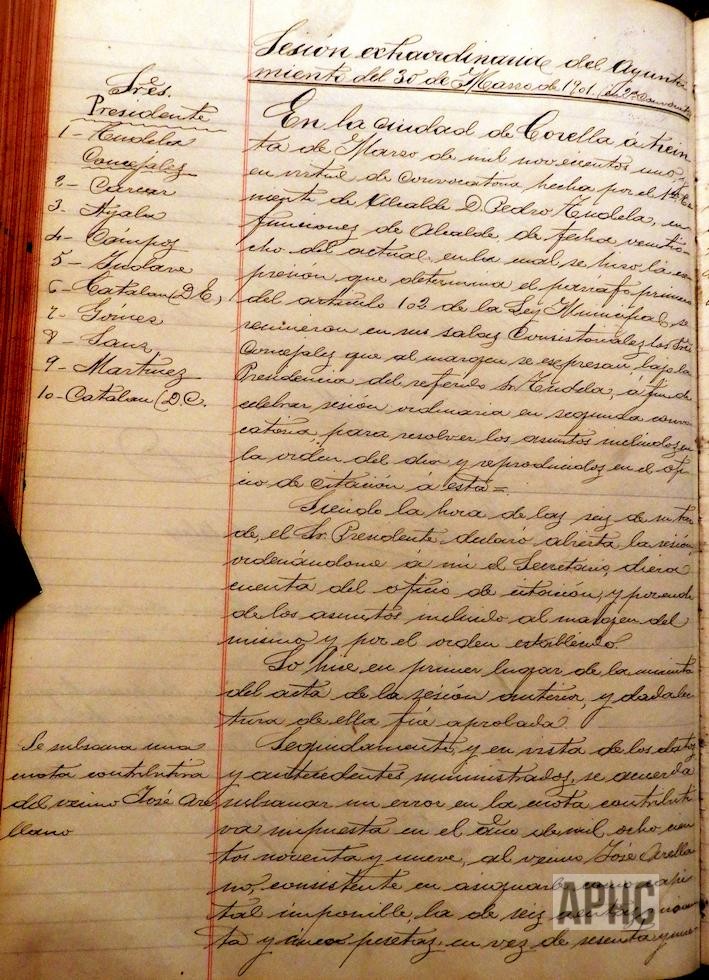 Sesión extraordinaria del Ayunta
miento del 30 de Marzo de 1901. (en 2ª Convocatª)
Sres.
Presidente
1- Tudela
Concejales
2- Carcar
3- Ayala
4- Campos
5- Gudave
6- Catalan (D E,
7- Gomez
8- Sanz
9- Martinez
10- Catalan (D. C.
En la ciudad de Corella á trein
ta de Marzo de mil novecientos uno,
en virtud de convocatoria hecha por el 1er Te
niente de Alcalde D. Pedro Tudela, en
funciones de Alcalde, de fecha veintio
cho del actual, en la cual, se hizo la ex
presión, que determina el párrafo primero
del artículo 102 de la Ley Municipal, se
reunieron en sus salas Consistoriales los Sres
Concejales que al margen se expresan bajo la
Presidencia del referido Sr. Tudela, á fin de
celebrar sesión ordinaria en segunda convo
catoria para resolver los asuntos incluidos en
la orden del dia y reproducidos en el ofi
cio de citación a esta=
Siendo la hora de las seis de su tar
de, el Sr. Presidente declaró abierta la sesión
ordenándome á mi el Secretario, diera
cuenta del oficio de citación, y por ende
de los asuntos incluido al margen del
mismo y por el orden establecido.
Lo hice en primer lugar de la minuta
del acta de la sesión anterior, y dada lec
tura de ella fué aprobada
Se subsana una
cuota contributiva
del vecino José Are
llano
Seguidamente, y en vista de los datos
y antecedentes suministrados, se acuerda
subsanar un error en la cuota contributi
va impuesta en el año de mil ocho cien
tos noventa y nueve, al vecino José Arella
no, consistente en asignarle como capi
tal imponible, la de seis cientas noven
ta y cinco pesetas, en vez de sesenta y nue
APHC